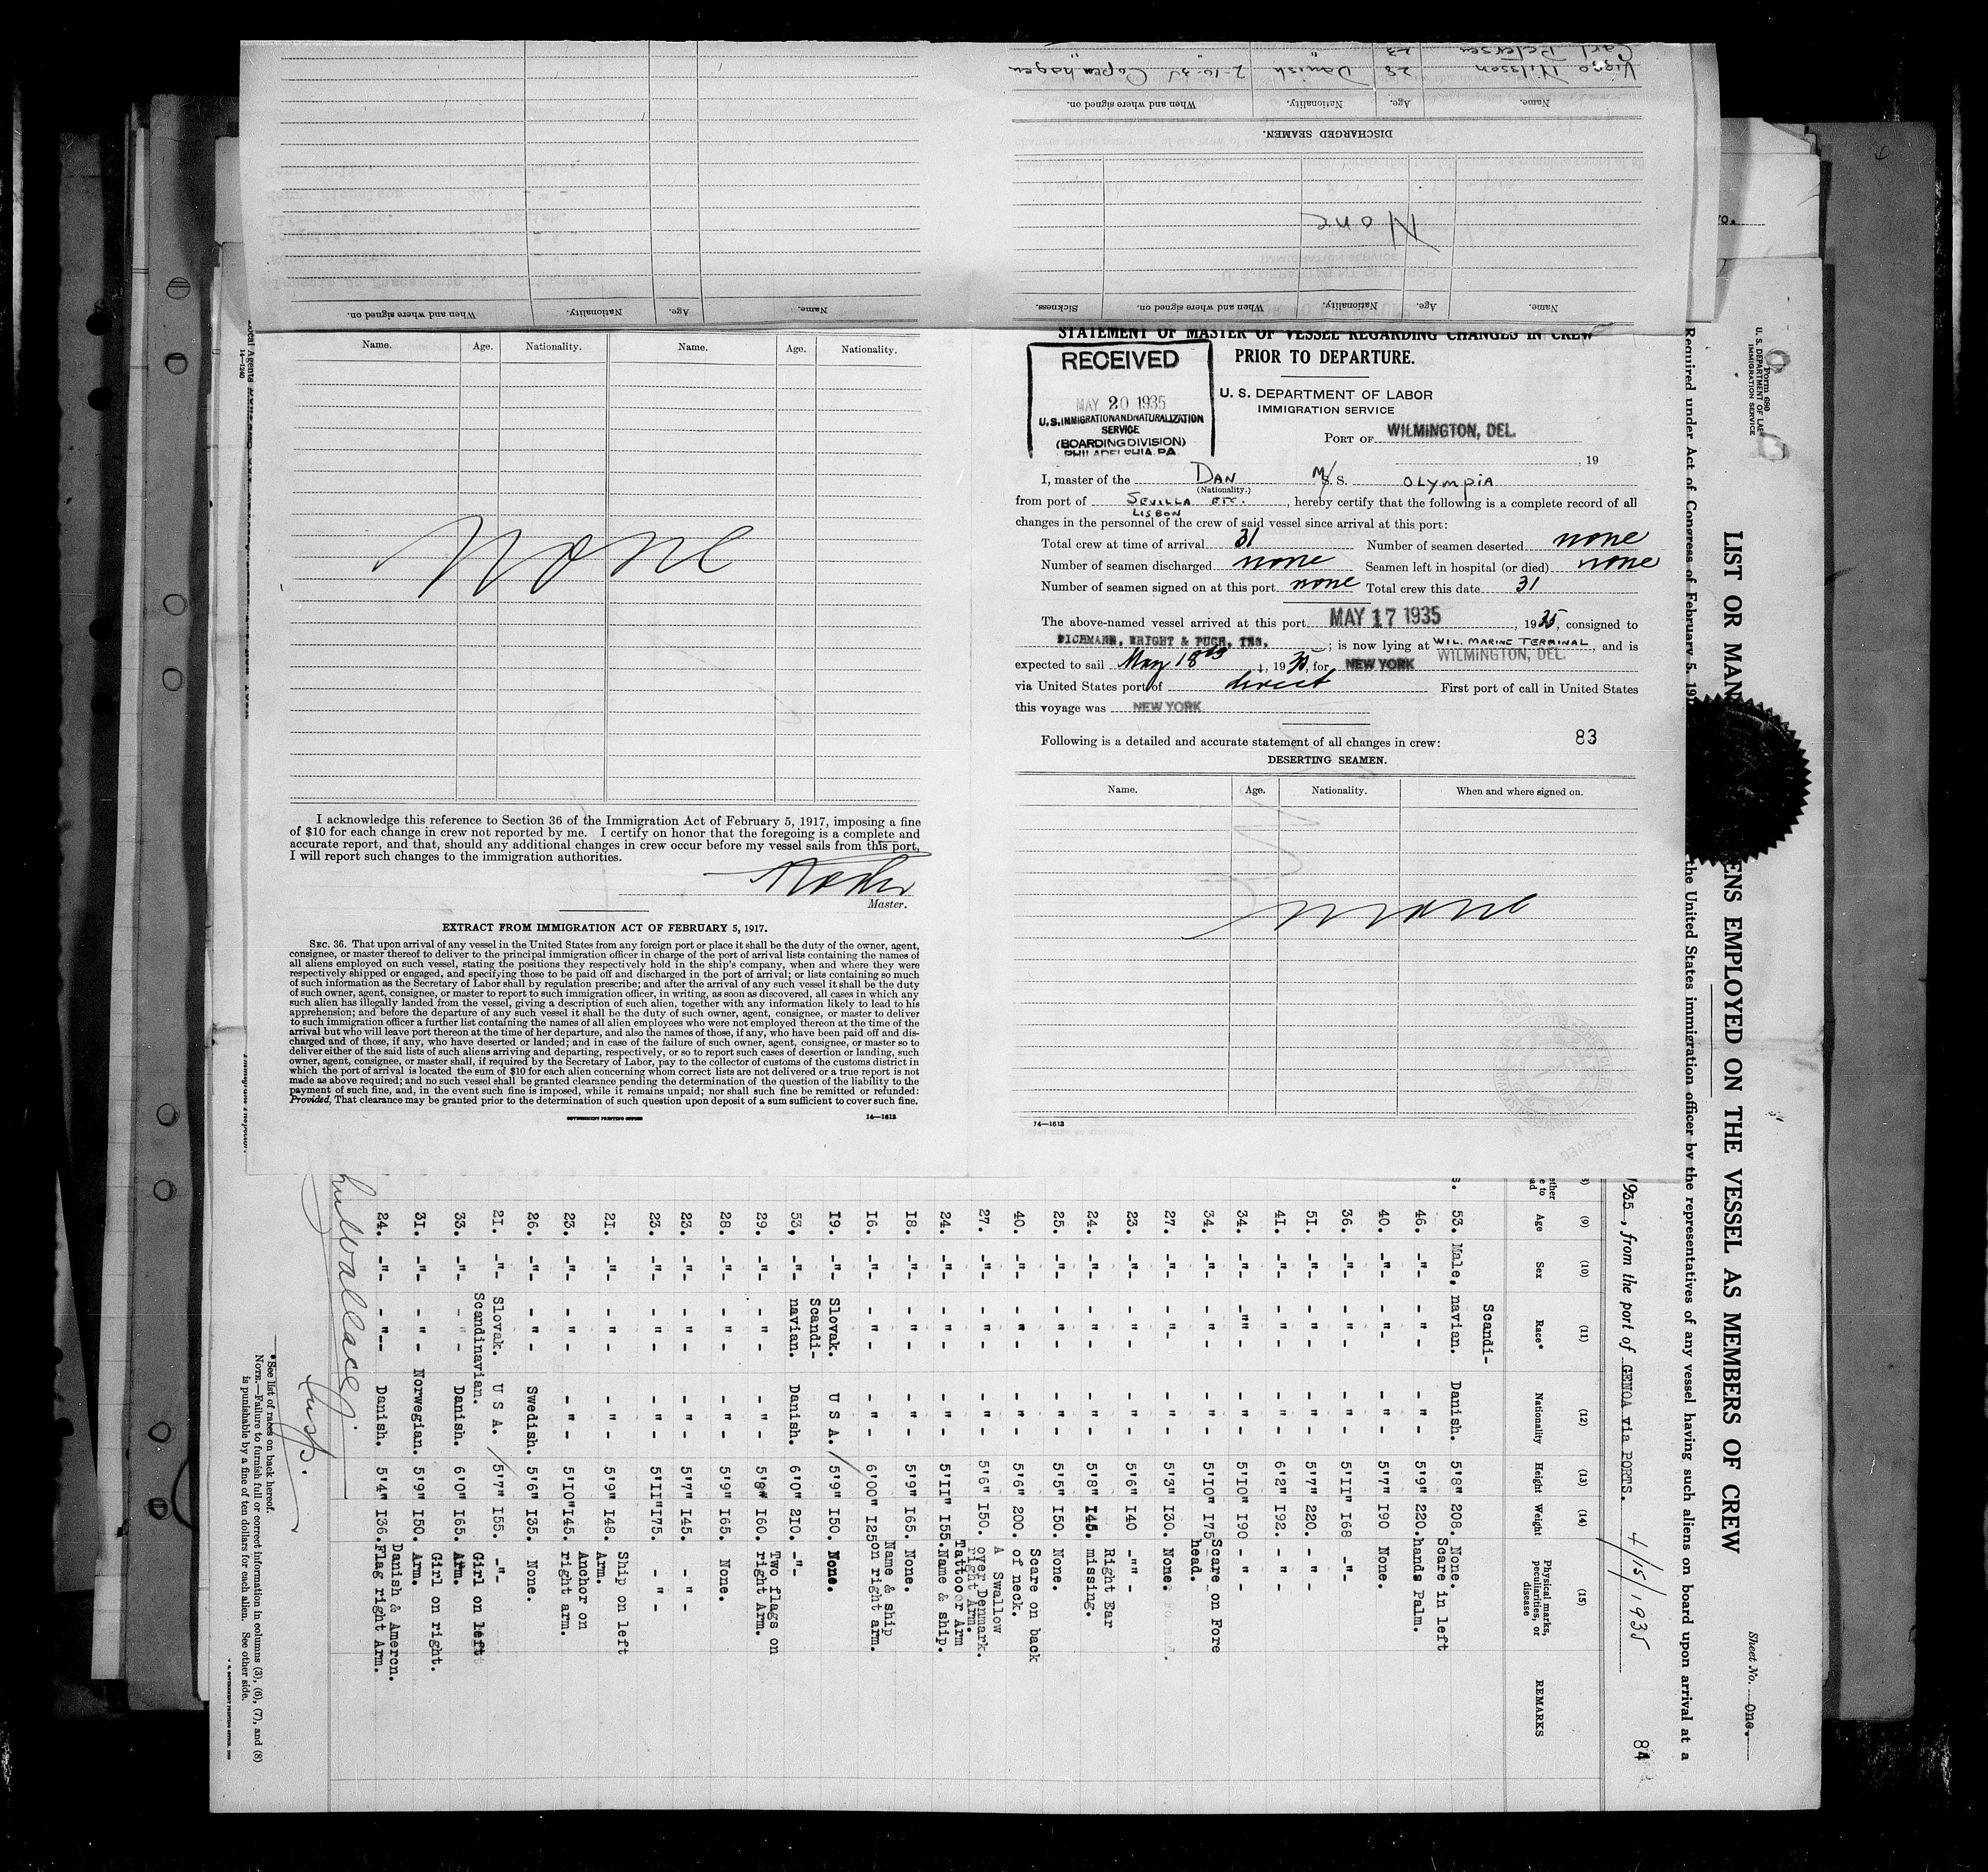 Carl Petersen 23 "
Viggo Nilsson 28 Danish 2-10-34 Copenhagen
Name. Age. Nationality. When and where signed on.
DISCHARGED SEAMEN.
None
Name. Age. Nationality. When and where signed on. Sickness.
Name. Age. Nationality. When and where signed on.
Name. Age. Nationality. Name. Age. Nationality.
none
I acknowledge this reference to Section 36 of the Immigration Act of February 5, 1917, imposing a fine
of $10 for each change in crew not reported by me. I certify on honor that the foregoing is a complete and
accurate report, and that, should any additional changes in crew occur before my vessel sails from this port,
I will report such changes to the immigration authorities.
Master.
EXTRACT FROM IMMIGRATION ACT OF FEBRUARY 5, 1917.
SEC. 36. That upon arrival of any vessel in the United States from any foreign port or place it shall be the duty of the owner, agent,
consignee, or master thereof to deliver to the principal immigration officer in charge of the port of arrival lists containing the names of
all aliens employed on such vessel, stating the positions they respectively hold in the ship's company, when and where they were
respectively shipped or engaged, and specifying those to be paid off and discharged in the port of arrival; or lists containing so much
of such information as the Secretary of Labor shall by regulation prescribe; and after the arrival of any such vessel it shall be the duty
of such owner, agent, consignee, or master to report to such immigration officer, in writing, as soon as discovered, all cases in which any
such alien has illegally landed from the vessel, giving a description of such alien, together with any information likely to lead to his
apprehension; and before the departure of any such vessel it shall be the duty of such owner, agent, consignee, or master to deliver
to such immigration officer a further list containing the names of all alien employees who were not employed thereon at the time of the
arrival but who will leave port thereon at the time of her departure, and also the names of those, if any, who have been paid off and dis-
charged and of those, if any, who have deserted or landed; and in case of the failure of such owner, agent, consignee, or master so to
deliver either of the said lists of such aliens arriving and departing, respectively, or so to report such cases of desertion or landing, such
owner, agent, consignee, or master shall, if required by the Secretary of Labor, pay to the collector of customs of the customs district in
which the port of arrival is located the sum of $10 for each alien concerning whom correct lists are not delivered or a true report is not
made as above required; and no such vessel shall be granted clearance pending the determination of the question of the liability to the
payment of such fine, and, in the event such fine is imposed, while it remains unpaid; nor shall such fine be remitted or refunded:
Provided, That clearance may be granted prior to the determination of such question upon deposit of a sum sufficient to cover such fine.
GOVERNMENT PRINTING OFFICE 14—1613
STATEMENT OF MASTER OF VESSEL REGARDING CHANGES IN CREW
PRIOR TO DEPARTURE.
RECEIVED
MAY 20 1935
U.S. IMMIGRATION AND NATURALIZATION
SERVICE
(BOARDING DIVISION)
PHILADELPHIA, PA
U. S. DEPARTMENT OF LABOR
IMMIGRATION SERVICE
PORT OF WILMINGTON, DEL.
, 19
I, master of the DAN M/S. S. OLYMPIA
(Nationality.)
from port of SEVILLA ETC. , hereby certify that the following is a complete record of all
LISBON
changes in the personnel of the crew of said vessel since arrival at this port:
Total crew at time of arrival 31 Number of seamen deserted none
Number of seamen discharged none Seamen left in hospital (or died) none
Number of seamen signed on at this port none Total crew this date 31
The above-named vessel arrived at this port MAY 17 1935 , 1935, consigned to
RICHMANN, WRIGHT & PUGH, INC. ; is now lying at WIL. MARINE TERMINAL, and is
WILMINGTON, DEL.
expected to sail May 18th, 1935, for NEW YORK
via United States port of direct First port of call in United States
this voyage was NEW YORK
Following is a detailed and accurate statement of all changes in crew: 83
DESERTING SEAMEN.
Name. Age. Nationality. When and where signed on.
none
14—1613
Form 680
U. S. DEPARTMENT OF LAB
IMMIGRATION SERVICE
Sheet No. One.
LIST OR MAN ENS EMPLOYED ON THE VESSEL AS MEMBERS OF CREW
Required under Act of Congress of February 5, 191 the United States immigration officer by the representatives of any vessel having such aliens on board upon arrival at a
1935, from the port of GENOA via PORTS. 4/15/1935
84
(9) (10) (11) (12) (13) (14) (15)
Age Sex Race* Nationality Height Weight Physical marks, peculiarities, or disease REMARKS
Scandi-
53. Male, navian. Danish. 5'8" 208. None.
Scare in left
46. -"- - " - - " - 5'9" 220. hands Palm.
40. -"- - "- - " - 5'7" I90 None.
36. -"- - " - - " - 5'II" I68 -"-
5I. -"- - " - - " - 5'7" 220. - " -
4I. -"- - " - - " - 6'2" I92. - " -
34. -"- -"" - - " - 5'I0" I90 - " -
Scare on Fore
34. -"- - " - - " - 5'I0" I75 head.
27. -"- - "- - " - 5'3" I30. None.
23. -"- - " - - " - 5'6" I40 -"" -
Right Ear
24. -"- - " - - " - 5'8" I45. missing.
25. -"- - " - - " - 5'5" I50. None.
Scare on back
40. -"- - " - - " - 5'6" 200. of neck.
A Swallow
27. -"- - " - - " - 5'6" I50. over Denmark.
right Arm.
Tattooer Arm
24. -"- - " - - " - 5'II" I55. Name & ship.
I8. -"- - " - - " - 5'9" I65. None.
Name & ship
I6. -"- - " - - " - 6'00" I25 on right arm.
I9. -"- Slovak. U S A. / 5'9" I50. None.
Scandi-
53, -"- navian. Danish. 6'0" 210. -"-
Two flags on
29. -"- - " - - " - 5'8" I60. right Arm.
28. -"- - " - - " - 5'9" I65. None.
23. -"- - " - - " - 5'7" I45. - " -
23. -"- - " - - " - 5'II" I75. - " -
Ship on left
2I. -"- - " - - " - 5'9" I48. Arm.
Anchor on
23. -"- - " - - " - 5'I0" I45. right arm.
26. -"- - " - Swedish. 5'6" I35. None.
2I. -"- Slovak. U S A. / 5'7" I55. -"-
Scandinavian.
Girl on left
33. -"- - " - Danish. 6'0" I65. Arm.
Girl on right.
3I. -"- - " - Norwegian. 5'9" I50. Arm.
Danish & Amercn.
24. -"- - "-- Danish. 5'4" I36. Flag right Arm.
Insp.
*See list of races on back hereof.
NOTE.—Failure to furnish full or correct information in columns (3), (6), (7), and (8)
is punishable by a fine of ten dollars for each alien. See other side.
Local Agents
14—1240